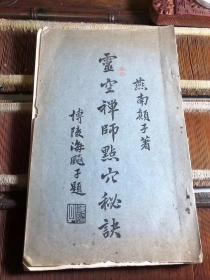 燕南顏子著
靈空禪師點穴秘訣
博陵海颿子題